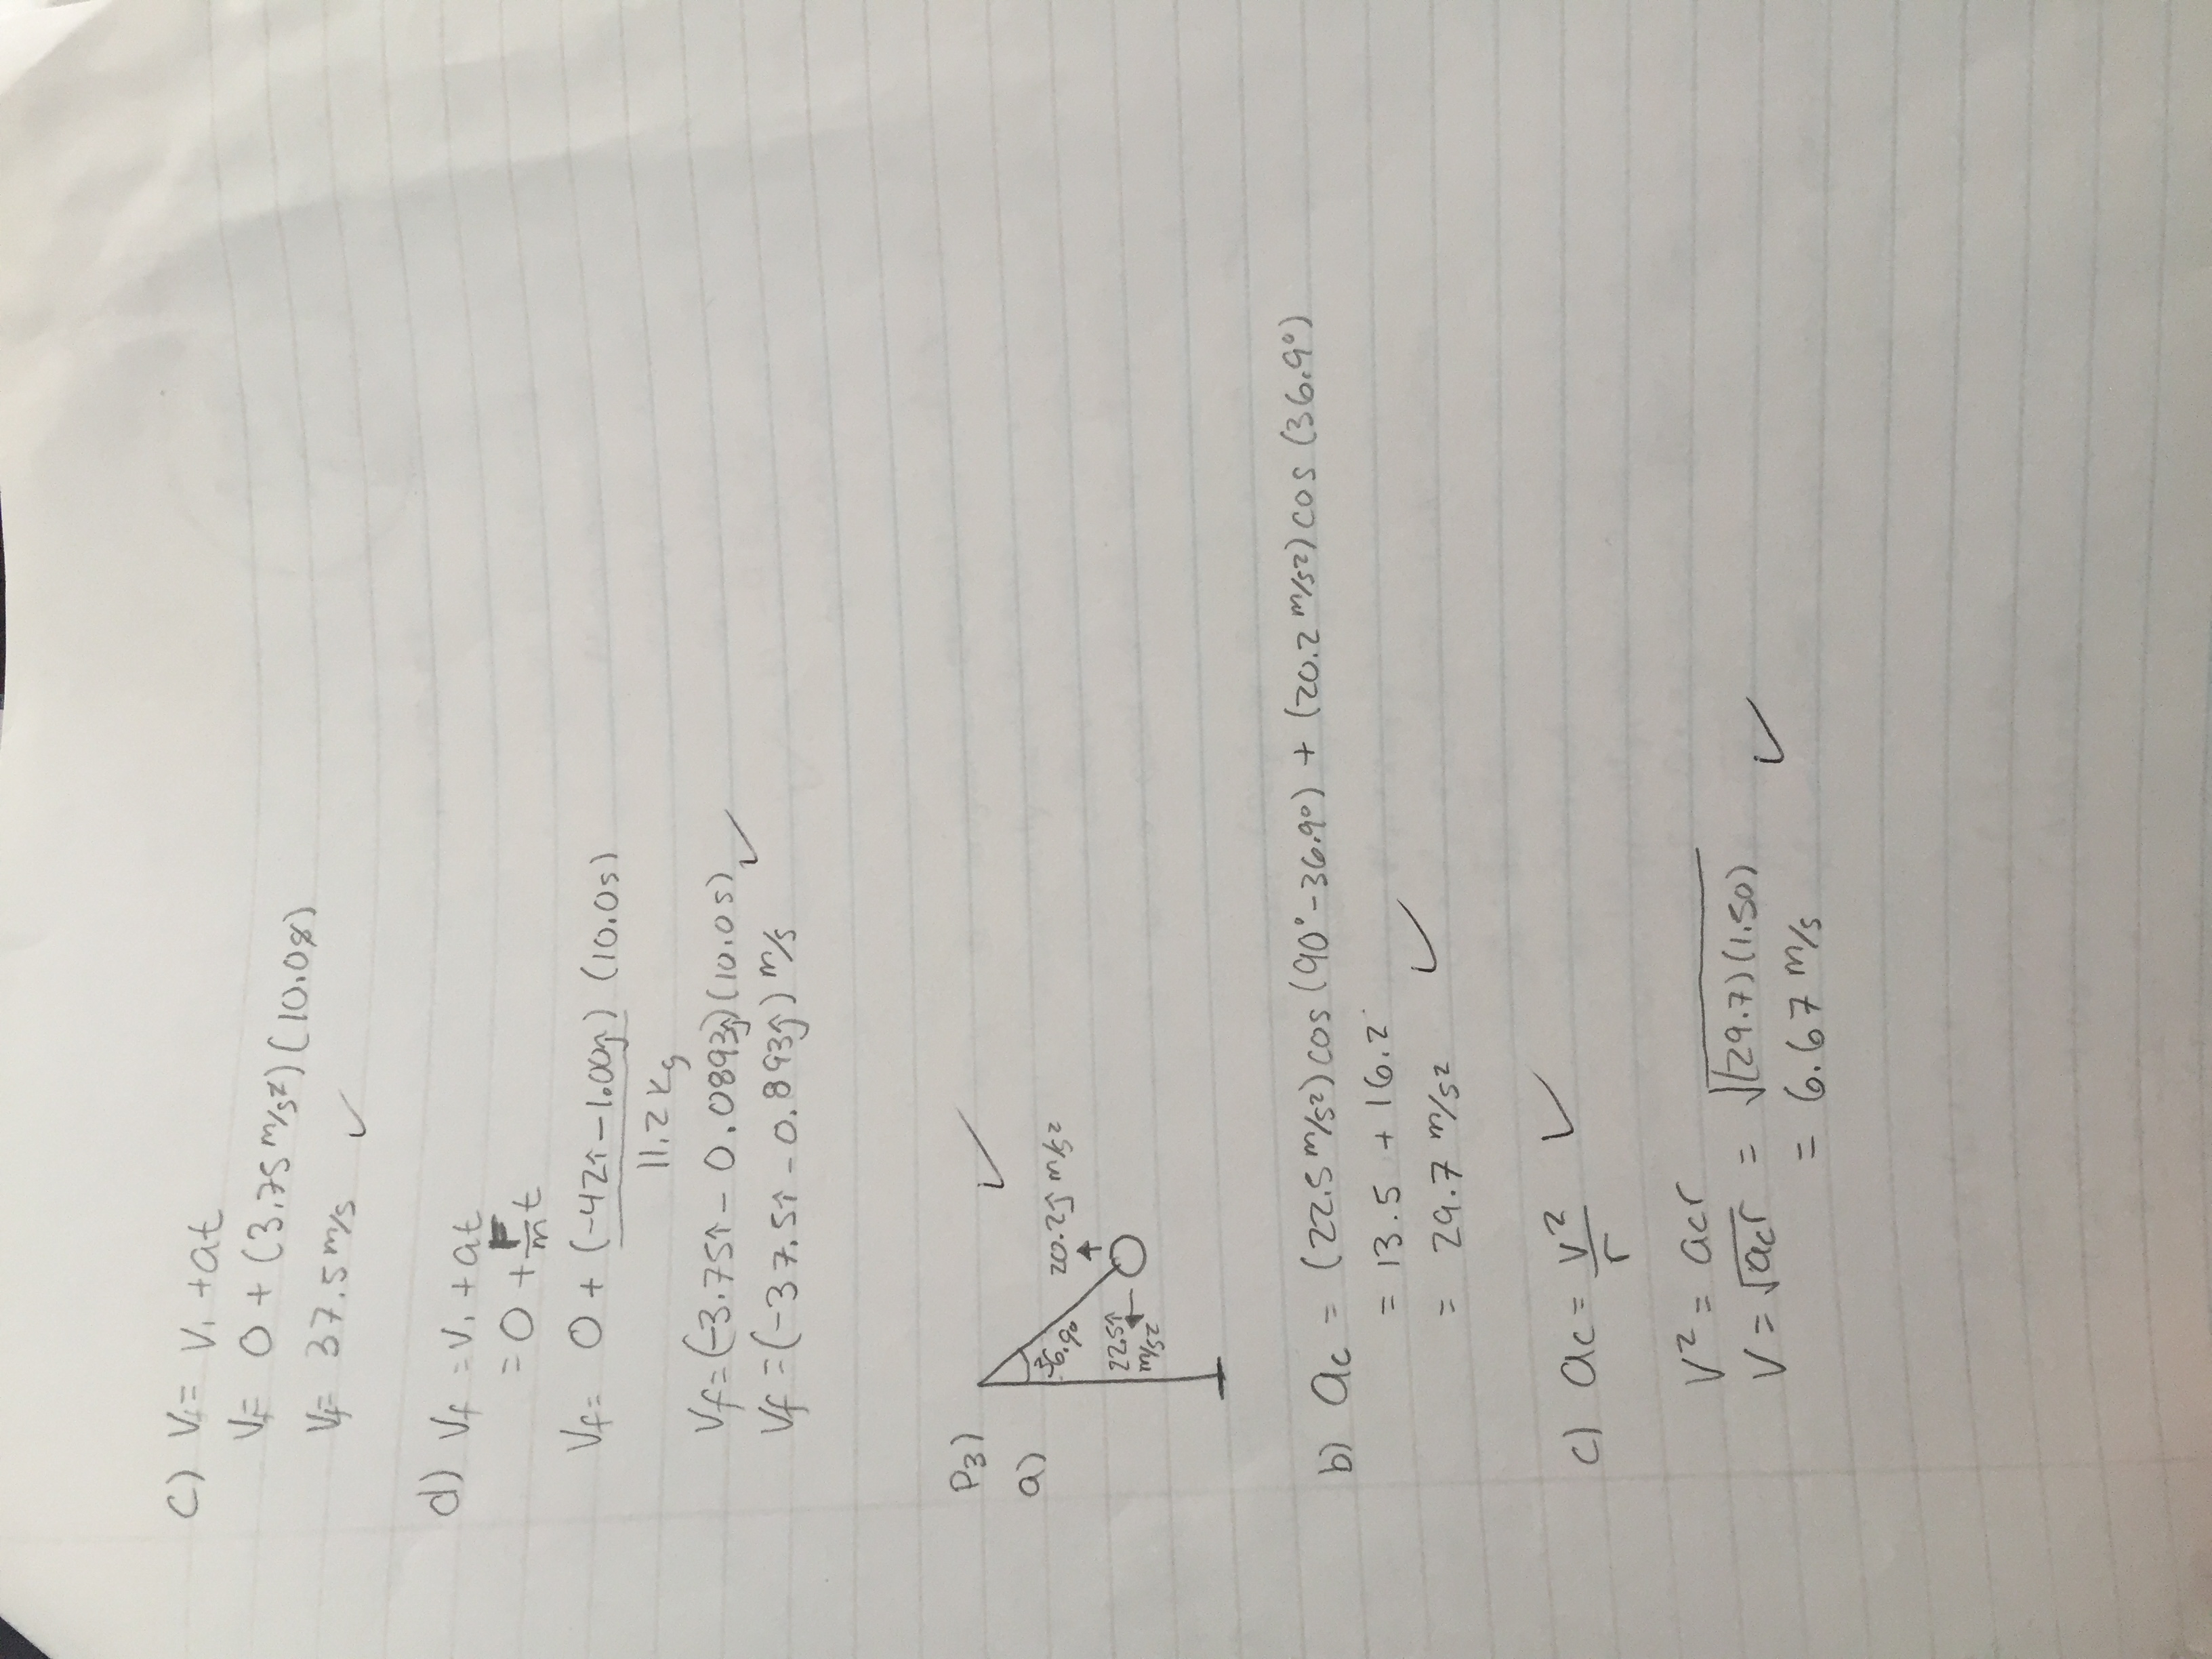 c) Vf = V1 + at
Vf = 0 + (3.75 m/s²)(10.0s)
Vf = 37.5 m/s ✓
d) Vf = V1 + at
= 0 + F/m t
Vf = 0 + (-42î - 1.00ĵ)/11.2 kg (10.0s)
Vf = (-3.75î - 0.0893ĵ)(10.0s) ✓
Vf = (-37.5î - 0.893ĵ) m/s
P3) ✓
a)
36.9°
20.2ĵ m/s²
22.5î
m/s²
b) ac = (22.5 m/s²) cos (90° - 36.9°) + (20.2 m/s²) cos (36.9°)
= 13.5 + 16.2
= 29.7 m/s² ✓
c) ac = V²/r ✓
V² = acr
V = √acr = √(29.7)(1.50)
= 6.67 m/s ✓